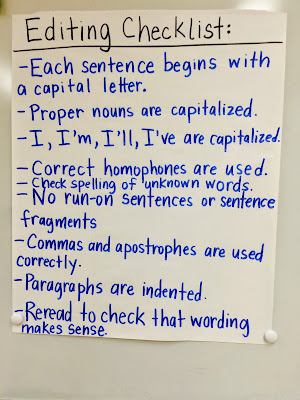 Editing Checklist:
-Each sentence begins with
a capital letter.
-Proper nouns are capitalized.
-I, I'm, I'll, I've are capitalized.
-Correct homophones are used.
-Check spelling of unknown words.
-No run-on sentences or sentence
fragments
-Commas and apostrophes are used
correctly.
-Paragraphs are indented.
-Reread to check that wording
makes sense.